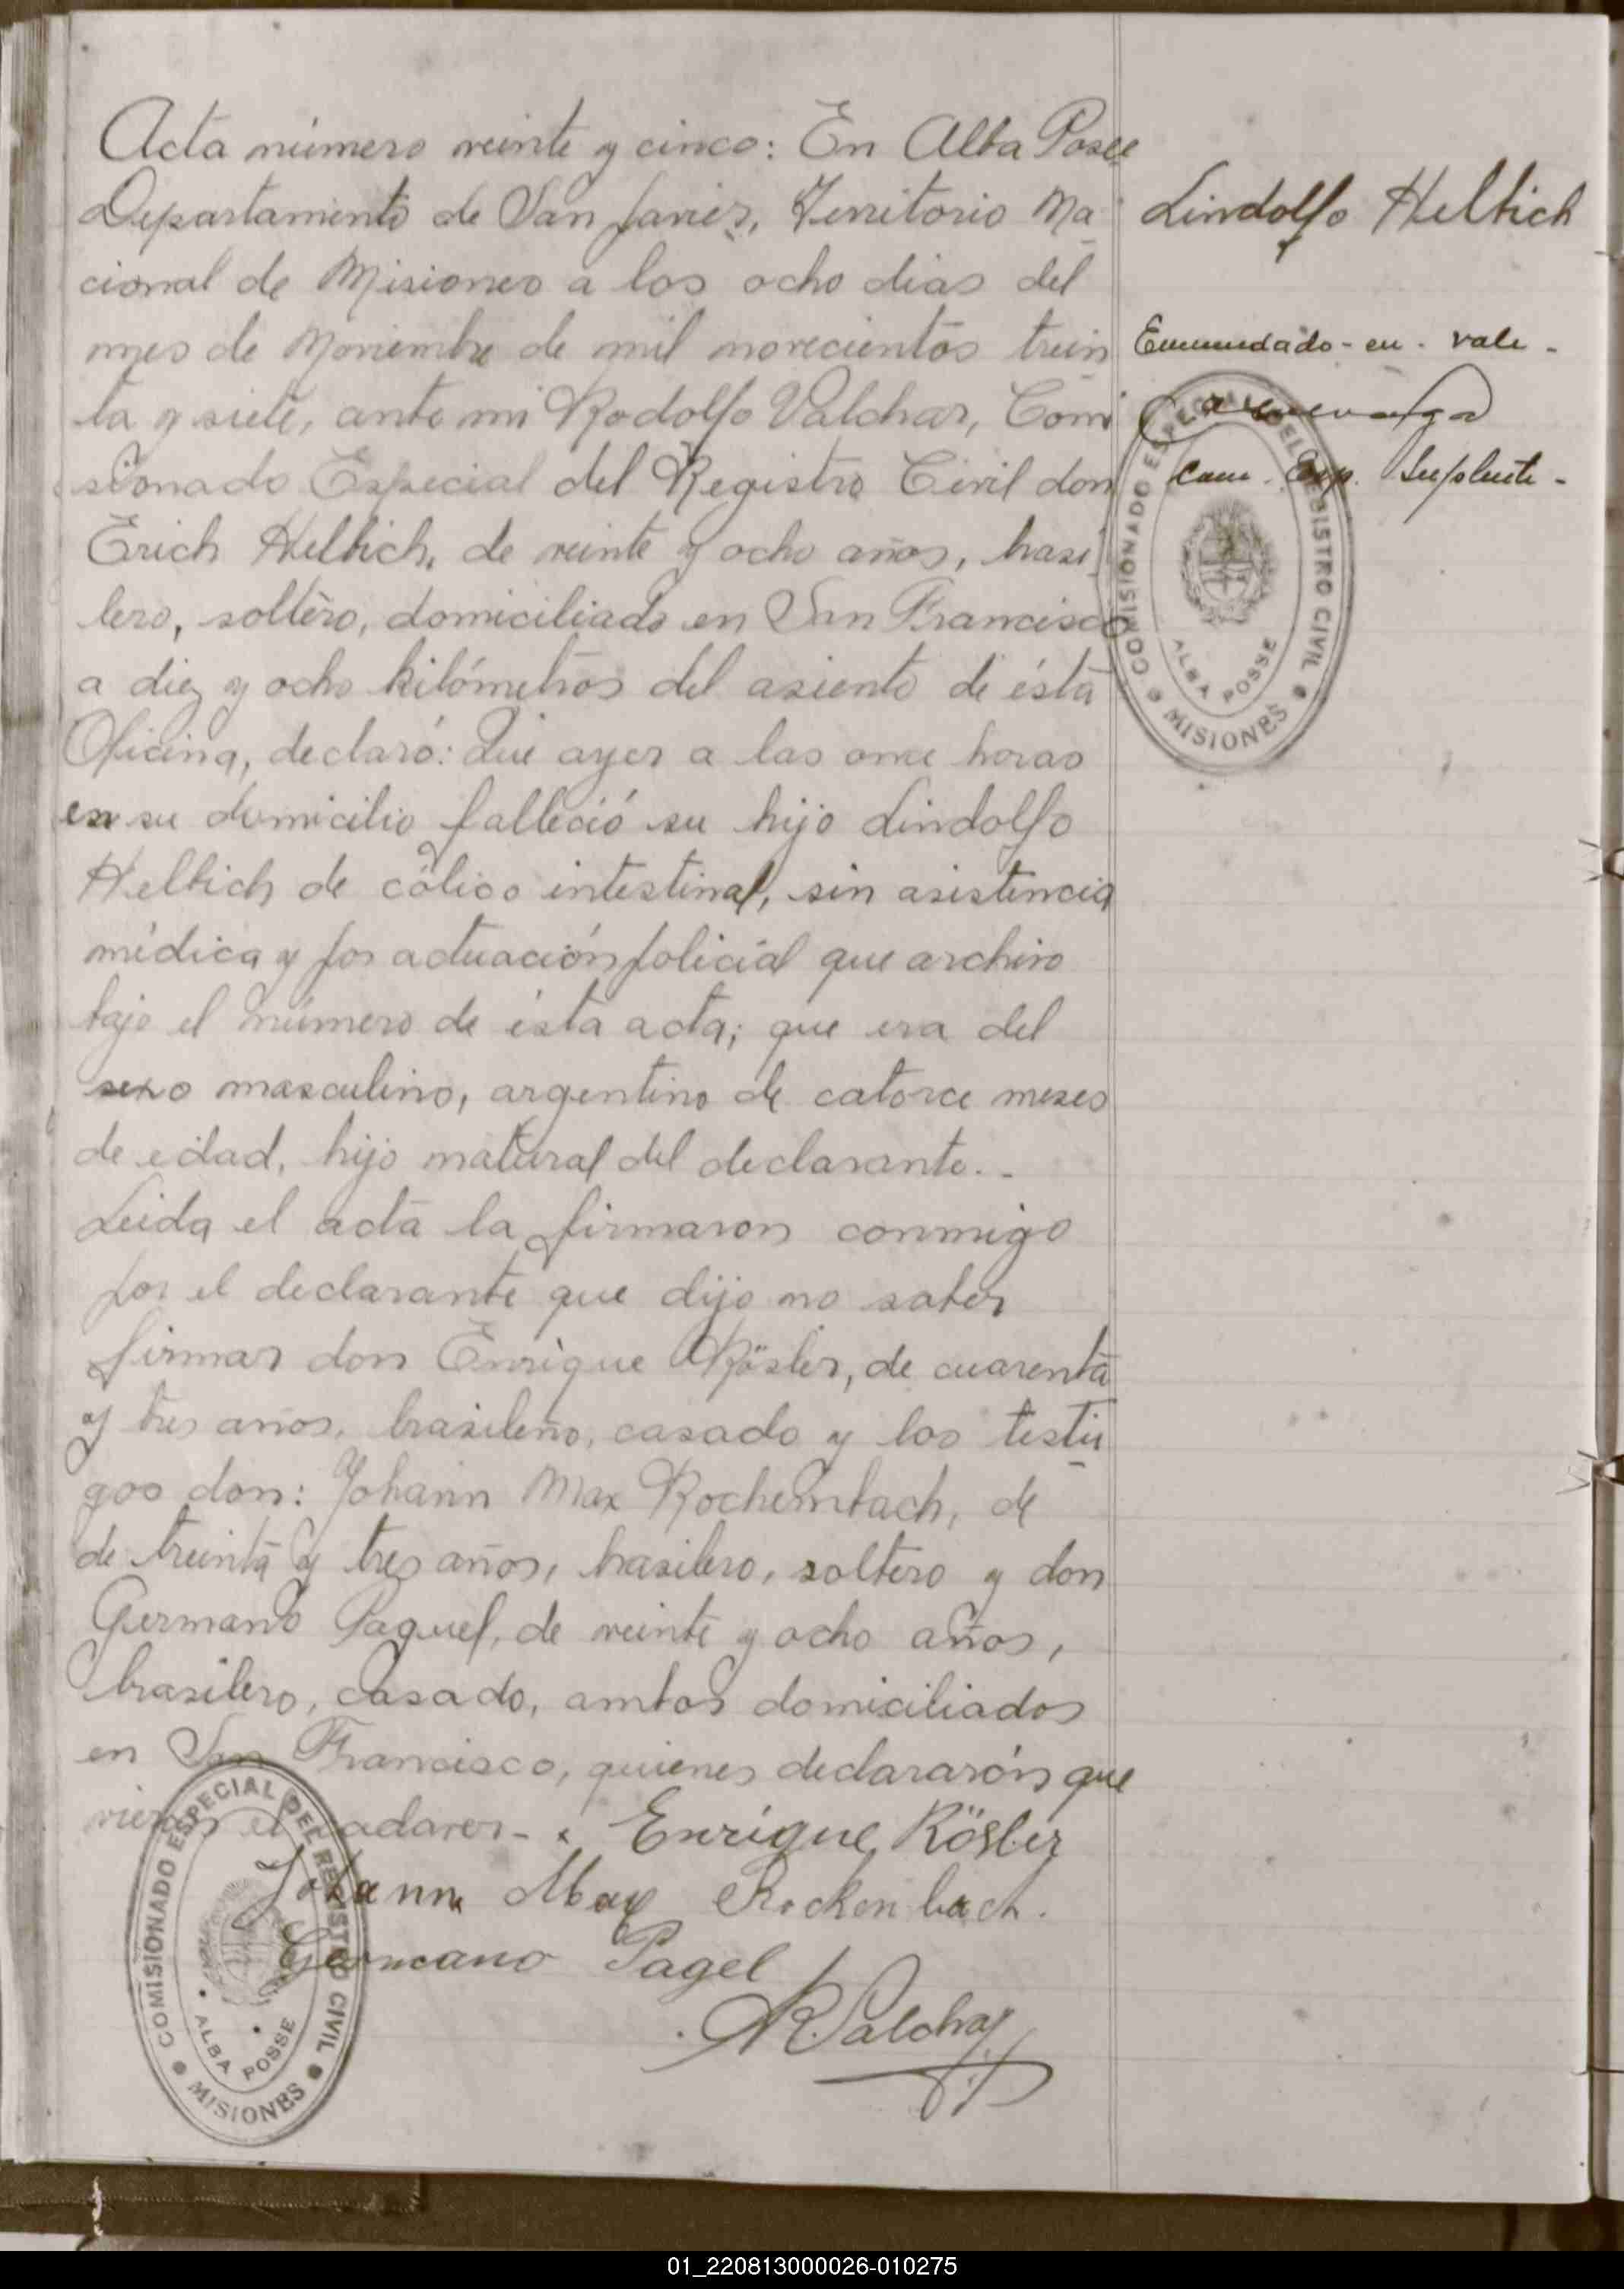 Acta número veinte y cinco: En Alba Posse
Departamento de San Javier, Territorio Na
cional de Misiones a los ocho dias del
mes de Noviembre de mil novecientos trein
ta y siete, ante mi Rodolfo Valchar, Comi
sionado Especial del Registro Civil don
Erich Helbich, de veinte y ocho años, brasi
lero, soltero, domiciliado en San Francisco
a diez y ocho kilómetros del asiento de ésta
Oficina, declaró: Que ayer a las once horas
en su domicilio falleció su hijo Lindolfo
Helbich de cólico intestinal, sin asistencia
médica y por actuación policial que archivo
bajo el número de ésta acta; que era del
sexo masculino, argentino de catorce meses
de edad, hijo natural del declarante. -
Leida el acta la firmaron conmigo
por el declarante que dijo no saber
firmar don Enrique Rösler, de cuarenta
y tres años, brasileño, casado y los testi
gos don: Johann Max Rochembach, de
de treinta y tres años, brasilero, soltero y don
Germano Paguel, de veinte y ocho años,
brasilero, casado, ambos domiciliados
en San Francisco, quienes declararón que
vieron el cadaver - . Enrique Rösler
Johann Max Rockenbach.
Germano Pagel
R. Valchar
Lindolfo Helbich
Enmendado - en - vale -
Com. Esp. Suplente -
COMISIONADO ESPECIAL DEL REGISTRO CIVIL
ALBA POSSE
MISIONES
COMISIONADO ESPECIAL DEL REGISTRO CIVIL
ALBA POSSE
MISIONES
01_220813000026-010275